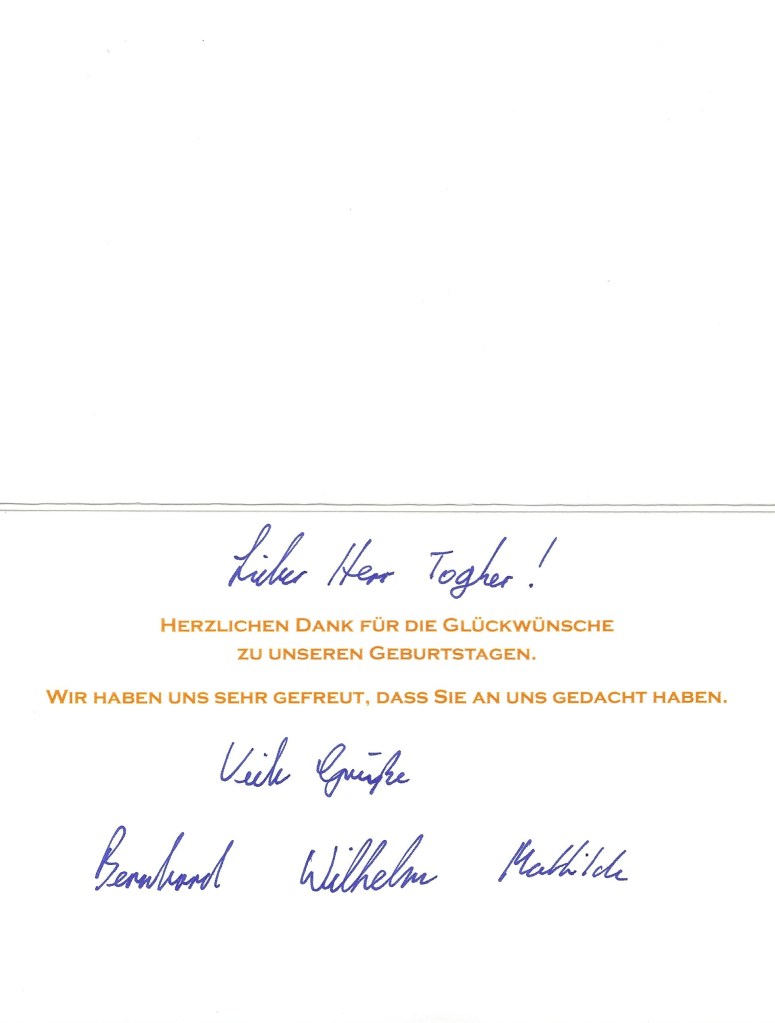 Lieber Herr Togher!
HERZLICHEN DANK FÜR DIE GLÜCKWÜNSCHE
ZU UNSEREN GEBURTSTAGEN.
WIR HABEN UNS SEHR GEFREUT, DASS SIE AN UNS GEDACHT HABEN.
Viele Grüße
Bernhard Wilhelm Mathilde